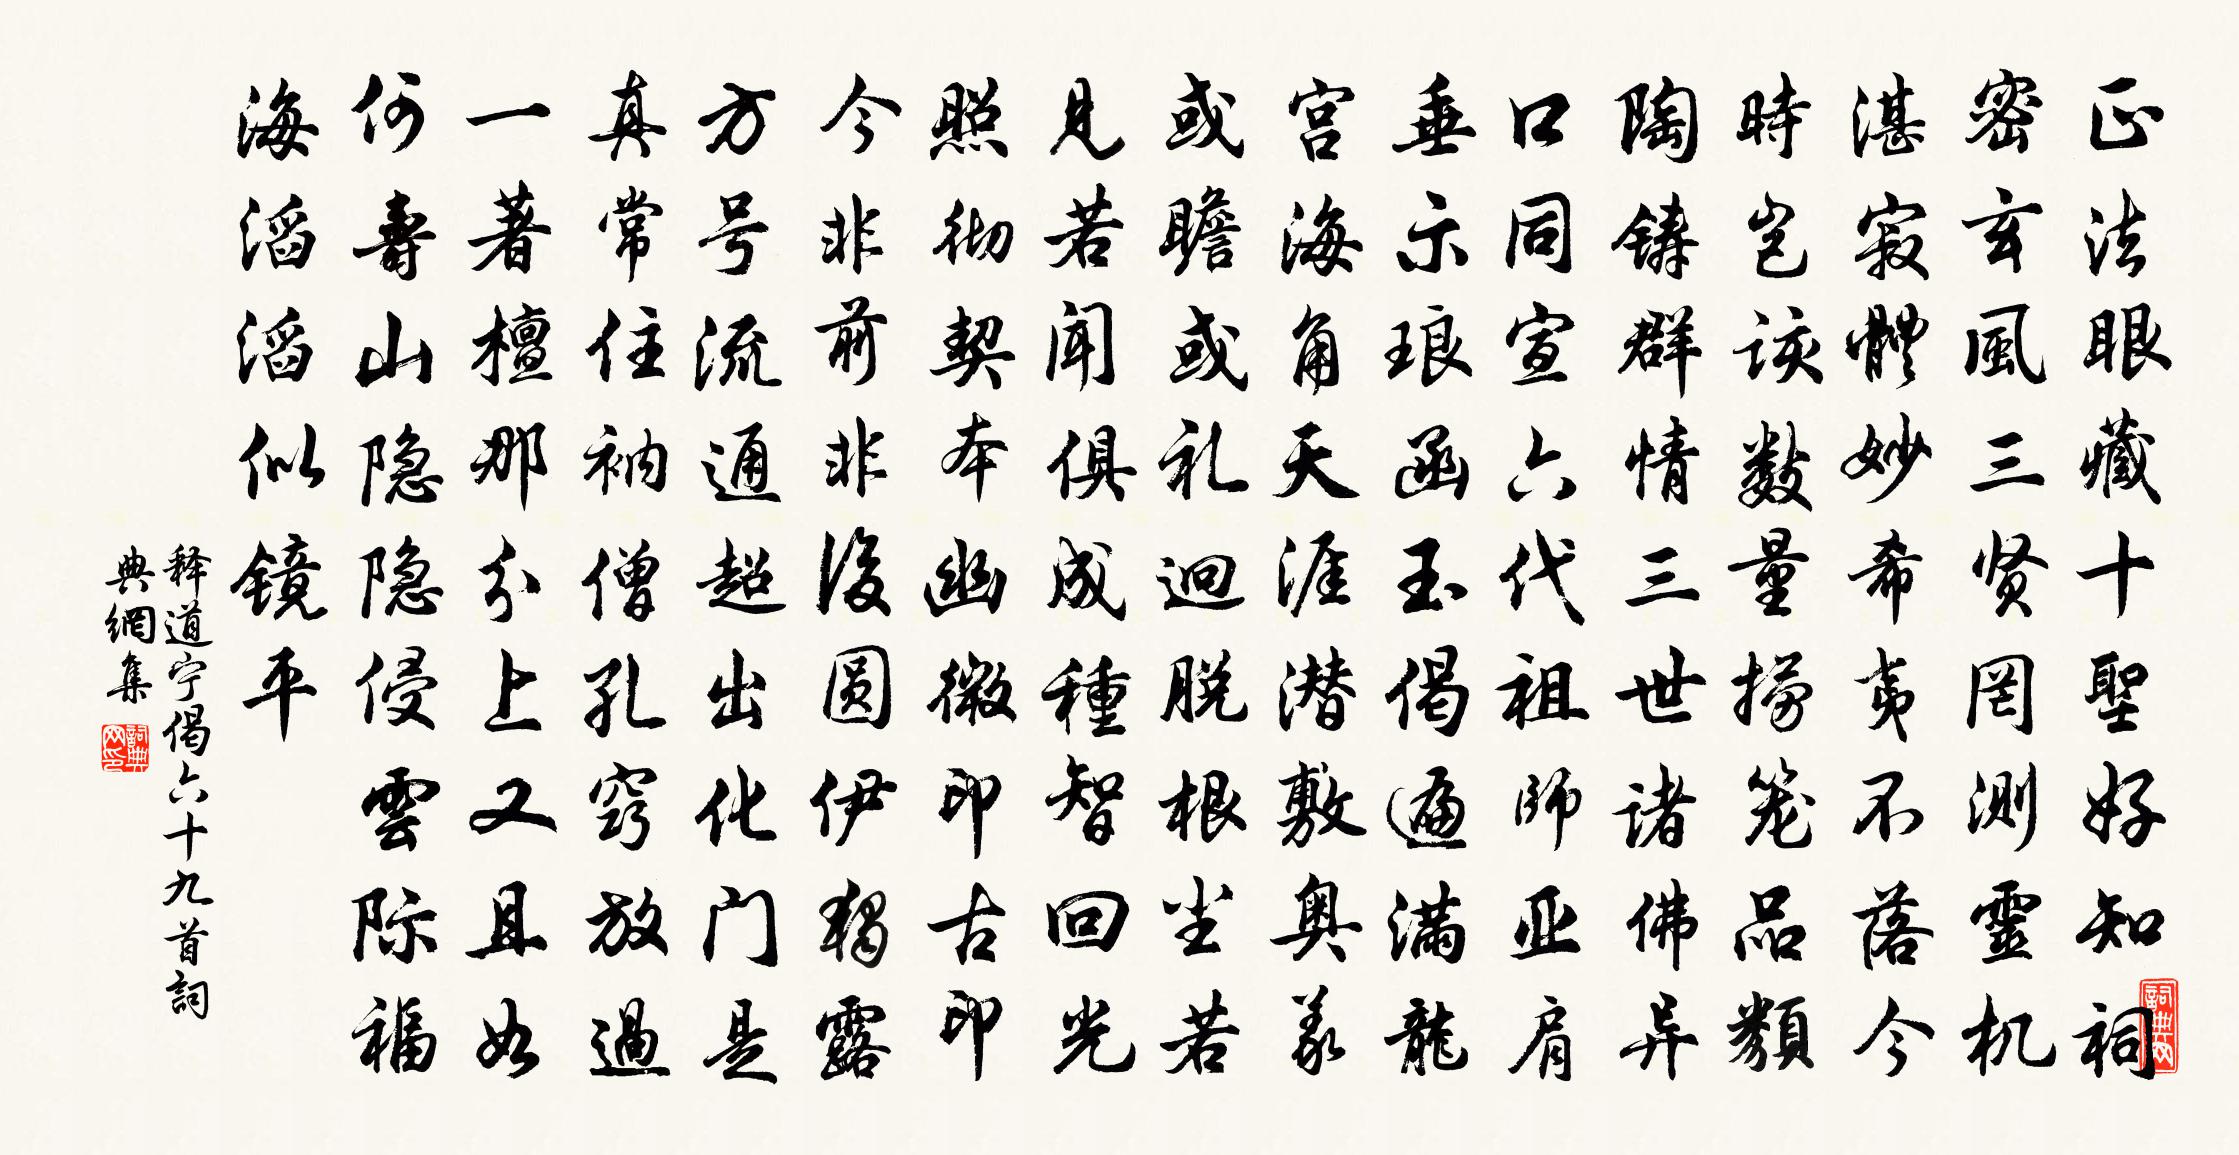 正法眼藏十聖好知祠
密玄風三贤罔測靈机
湛寂體妙希夷不落今
時岂该数量撈笼品類
陶鑄群情三世诸佛异
口同宣六代祖師亚肩
垂示琅函玉偈遍滿龍
宫海角天涯潜敷奥義
或瞻或礼迥脱根尘若
見若聞俱成種智回光
照彻契本幽微印古印
今非前非後圆伊獨露
方号流通超出化门是
真常住衲僧孔窍放過
一著檀那分上又且如
何壽山隐隐侵雲际福
海滔滔似镜平
释道宁偈六十九首詞
典網集
詞典网印
詞典网